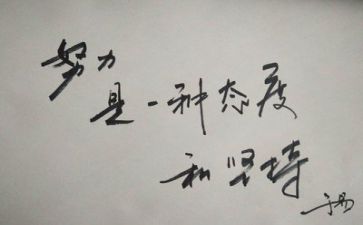 努力
是一种态度
和坚持